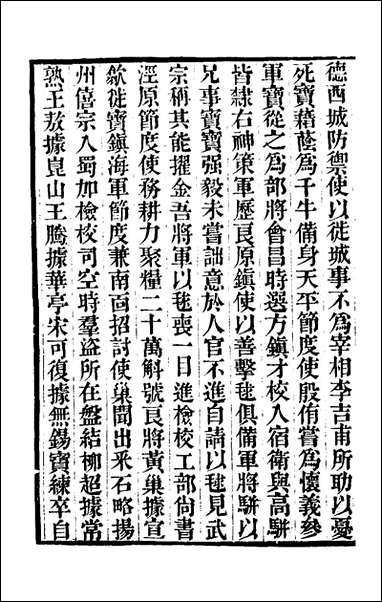 德西城防禦使以徙城事不為宰相李吉甫所助以憂
死寶藉蔭為千牛備身天平節度使殷侑嘗為懷義參
軍寶從之為部將會昌時選方鎮才校入宿衛與高駢
皆隸右神策軍歷良原鎮使以善擊毬俱備軍將駢以
兄事寶寶强毅未嘗詘意於人官不進自請以毬見武
宗稱其能擢金吾將軍以毬喪一日進檢校工部尚書
涇原節度使務耕力聚糧二十萬斛號良將黃巢據宣
歙徙寶鎮海軍節度兼南面招討使巢聞出釆石略揚
州僖宗入蜀加檢校司空時羣盜所在盤結柳超據常
熟王敖據崑山王騰據華亭宋可復據無錫寶練卒自